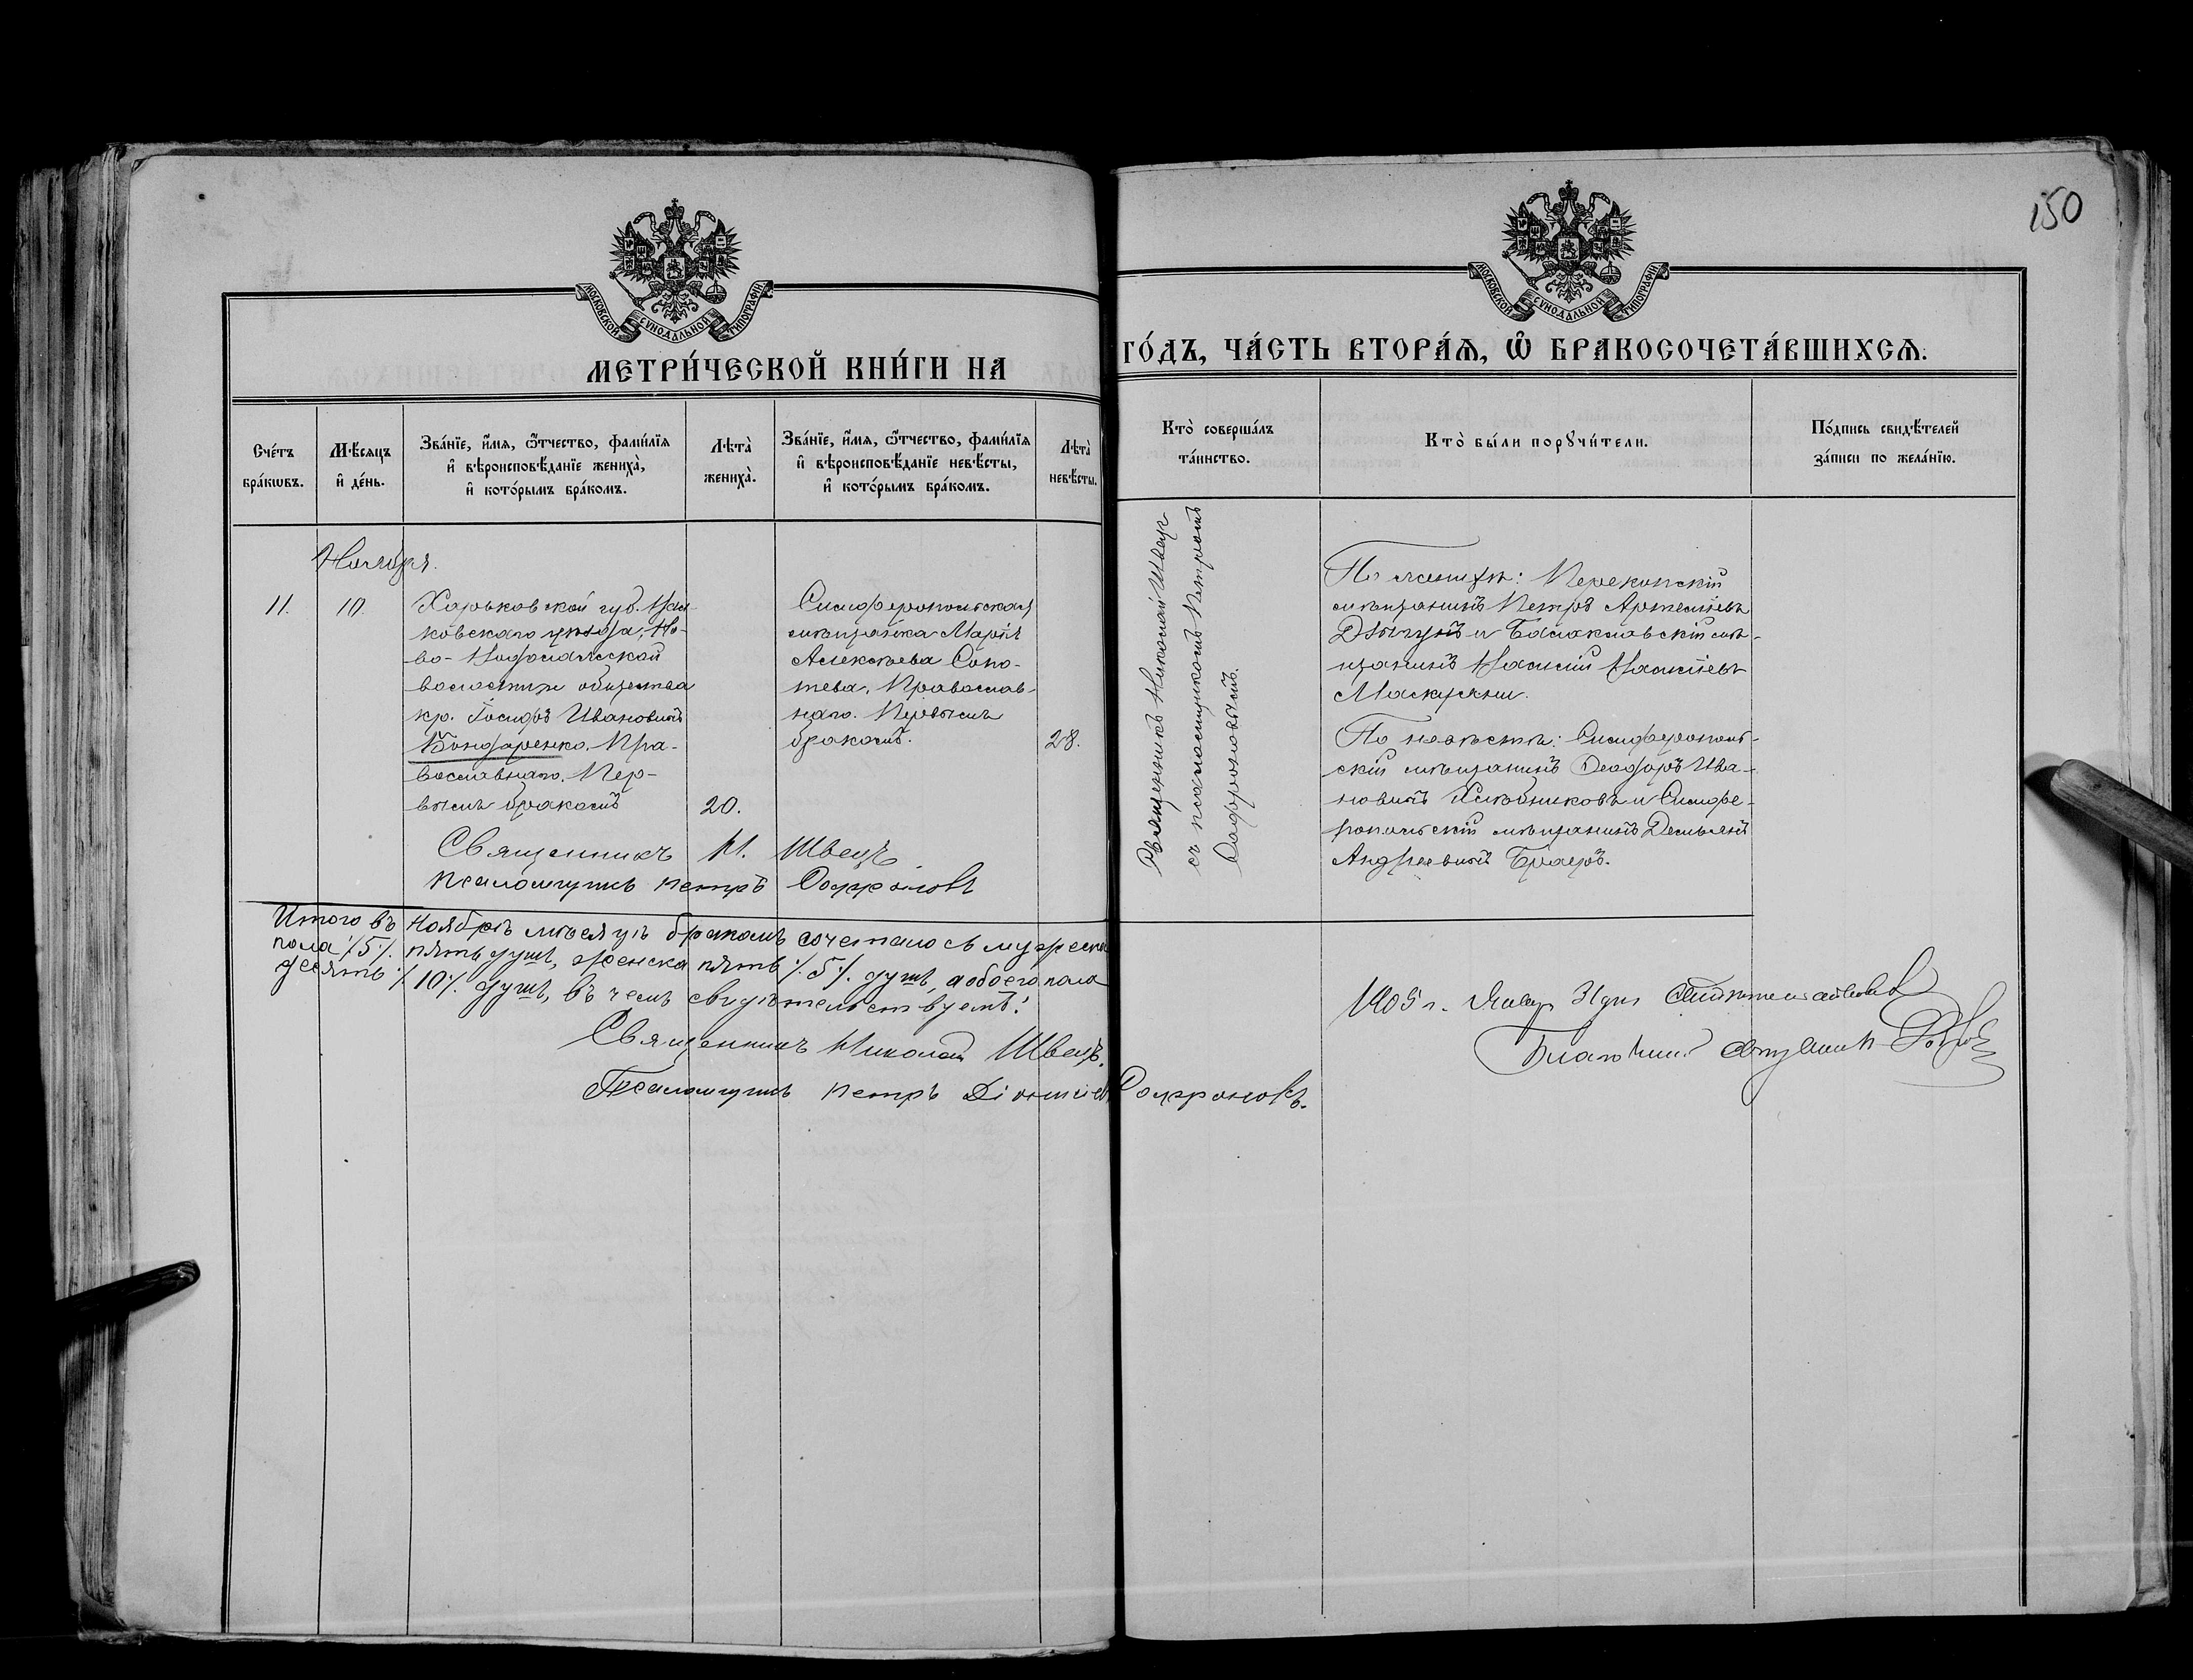 150
МОСКОВСКОЙ СѴНОДАЛЬНОЙ ТИПОГРАФІИ
МОСКОВСКОЙ СѴНОДАЛЬНОЙ ТИПОГРАФІИ
МЕТРИ́ЧЕСКОЙ КНИ́ГИ НА
ГО́ДЪ, ЧА́СТЬ ВТОРА́Ѧ, Ѽ БРАКОСОЧЕТА́ВШИХСѦ.
Сче́тъ бра́кѡвъ.
Мѣ́сѧцъ и҆ де́нь.
Зва́нїе, и҆́мѧ, ѻ҆́тчество, фами́лїѧ
и҆ вѣроисповѣ́данїе жениха̀,
и҆ кото́рымъ бра́комъ.
Лѣта̀ жениха̀.
Зва́нїе, и҆́мѧ, ѻ҆́тчество, фами́лїѧ
и҆ вѣроисповѣ́данїе невѣ́сты,
и҆ кото́рымъ бра́комъ.
Лѣта̀ невѣ́сты.
Кто̀ соверша́лъ та́инство.
Кто̀ бы́ли порꙋчи́тели.
По́дпись свидѣ́телей за́писи по жела́нїю.
Ноября.
11.
10.
Харьковской губ.
ковскаго уѣзда, Но-
во-
волости общества
кр. Іосифъ Ивановичъ
Бондаренко. Пра-
вославнаго. Пер-
вымъ бракомъ
20.
Симферопольская
мѣщанка Марія
Алексѣева Соло-
тева, Православ-
наго. Первымъ
бракомъ.
28.
Священникъ Николай Швецъ
съ псаломщикомъ Петромъ
Софроновымъ.
По женихѣ: Перекопскій
мѣщанинъ Петръ Артеміевъ
и Балаклавскій мѣ-
щанинъ
По невѣстѣ: Симферополь-
скій мѣщанинъ Ѳеодоръ Ива-
новичъ и Симфе-
ропольскій мѣщанинъ Демьянъ
Андреевичъ
Священникъ Н. Швецъ
Псаломщикъ Петръ Софроновъ
Итого въ Ноябрѣ мѣсяцѣ бракомъ сочеталось мужеска
пола /5/. пять душъ, женска пять /.5/. душъ, а обоего пола
десять /.10/. душъ, въ чемъ свидѣтельствуемъ:
Священникъ Николай Швецъ.
Псаломщикъ Петръ Діонисіевъ Софроновъ.
1905 г.